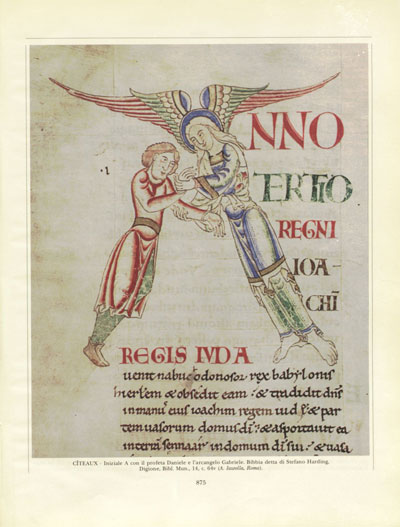 NNO
TERTIO
REGNI
IOA-
CHĪ
REGIS IVDA
uenit nabuc odonosor rex babylonis
hierlem & obsedit eam; & tradidit dn̄s
in manu eius ioachim regem iudę; & par
tem uasorum domus dī; & asportauit ea
in terrā sennaar in domum dī sui; & uasa
CÎTEAUX - Iniziale A con il profeta Daniele e l'arcangelo Gabriele. Bibbia detta di Stefano Harding.
Digione, Bibl. Mun., 14, c. 64v (Roma).
875